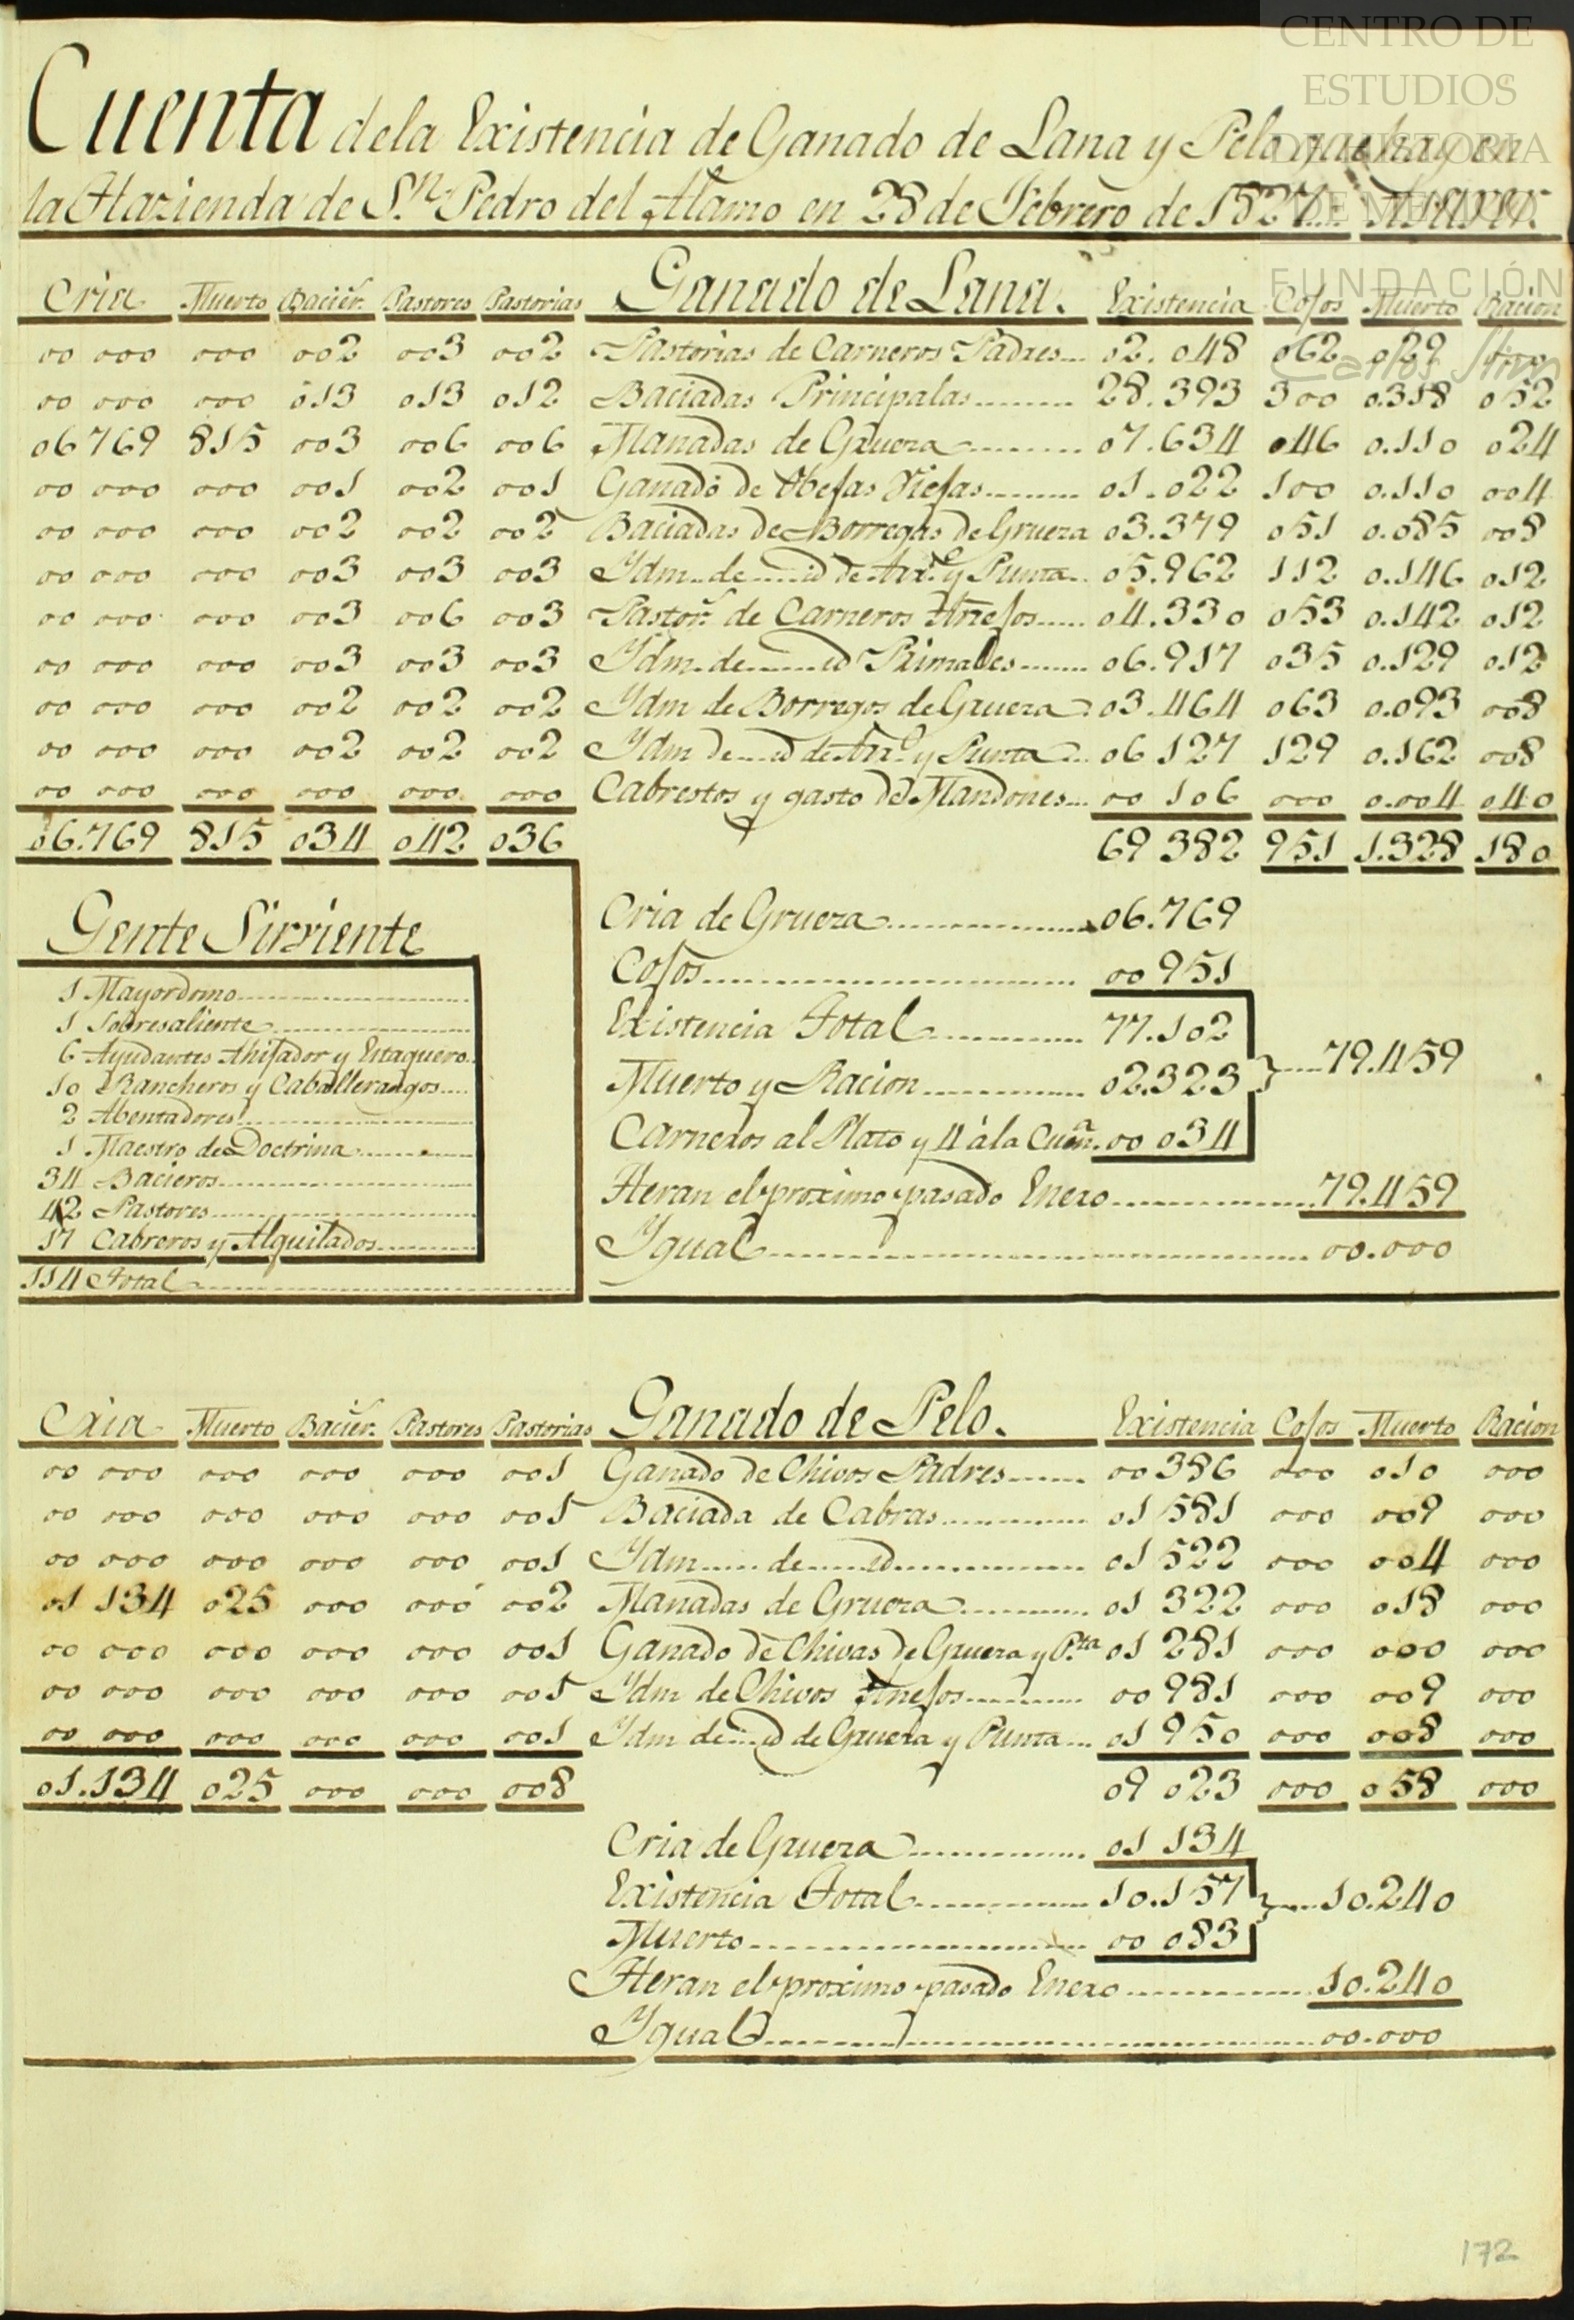 CENTRO DE
ESTUDIOS
DE HISTORIA
DE MÉXICO
FUNDACIÓN
Carlos Slim
Cuenta dela Existencia de Ganado de Lana y Pelo que hay en
la Hazienda de S.n Pedro del Alamo en 28 de Febrero de 1827
Cria Muerto Bacier.s Pastores Pastorias Ganado de Lana. Existencia Cojos Muerto Racion
00 000 000 002 003 002 Pastorias de Carneros Padres 02.048 062 029 000
00 000 000 013 013 012 Baciadas Principalas 28.393 300 0.318 052
06 769 815 003 006 006 Manadas de Gruera 07.634 046 0.110 024
00 000 000 001 002 001 Ganado de Obejas Viejas 01.022 100 0.110 004
00 000 000 002 002 002 Baciadas de Borregas de Gruera 03.379 051 0.085 008
00 000 000 003 003 003 Ydm de id de Arr.o y Punta 05.962 112 0.146 012
00 000 000 003 006 003 Pastor.s de Carneros Añejos 04.330 053 0.142 012
00 000 000 003 003 003 Ydm de id Primales 06.917 035 0.129 012
00 000 000 002 002 002 Ydm de Borregos de Gruera 03.464 063 0.093 008
00 000 000 002 002 002 Ydm de id de Arr.o y Punta 06 127 129 0.162 008
00 000 000 000 000 000 Cabrestos y gasto de Mandones 00 106 000 0.004 040
06.769 815 034 042 036 69 382 951 1.328 180
Gente Sirviente
1 Mayordomo
1 Sobresaliente
6 Ayudantes Ahijador y Estaquero
10 Rancheros y Caballerangos
2 Abentadores
1 Maestro de Doctrina
34 Bacieros
42 Pastores
17 Cabreros y Alquilados
114 Total
Cria de Gruera 06.769
Cojos 00 951
Existencia Total 77.102
Muerto y Racion 02.323 79.459
Carneros al Plato y 4 á la 00 034
Heran el proximo pasado Enero 79.459
Ygual 00.000
Cria Muerto Bacier.s Pastores Pastorias Ganado de Pelo. Existencia Cojos Muerto Racion
00 000 000 000 000 001 Ganado de Chivos Padres 00 386 000 010 000
00 000 000 000 000 001 Baciada de Cabras 01 581 000 009 000
00 000 000 000 000 001 Ydm de id 01 522 000 004 000
01 134 025 000 000 002 Manadas de Gruera 01 322 000 018 000
00 000 000 000 000 001 Ganado de Chivas de Gruera y P.ta 01 281 000 000 000
00 000 000 000 000 001 Ydm de Chivos Añejos 00 981 000 009 000
00 000 000 000 000 001 Ydm de id de Gruera y Punta 01 950 000 008 000
01.134 025 000 000 008 09 023 000 058 000
Cria de Gruera 01 134
Existencia Total 10.157 10.240
Muerto 00 083
Heran el proximo pasado Enero 10.240
Ygual 00.000
172